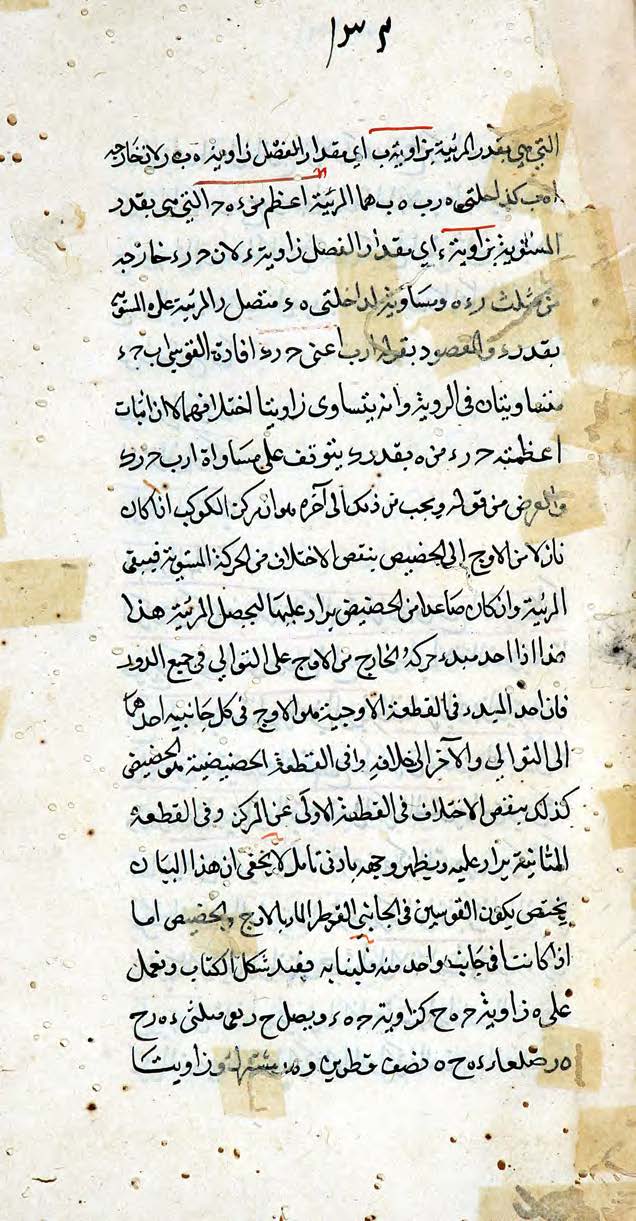 التي هي بقدر المرئية بزاوية ب اي بمقدار الفضل زاوية ه ب ر لان خارجه
ا ه ب كداخلتي ه ر ب ه ب هما المرئية اعظم من ء ه ح التي هي بقدر
المستوية بزاوية ء اي بمقدار الفضل زاوية ء لان ح ر ء خارجه
من مثلث ر ء ه ومساوية لداخلتي ه ء ففضل المرئية على المستوية
بقدر ء والمقصود بقوله ا ر ب اعنى ح ر ء افادة القوسي ا ب ح ء
متساويتان في الروية وانه يتساوى زاويتا اختلافهما لا ان اثبات
اعظمية ح ر ء من ه بقدر ء يتوقف على مساواة ا ر ب ح ر ء
والغرض من قوله ويجب من ذلك الى آخره هو ان مركز الكوكب اذا كان
نازلا من الاوج الى الحضيض ينقص الاختلاف من الحركة المستوية فيبقى
المرئية وان كان صاعدا من الحضيض يزاد عليها ليحصل المرئية هذا
هذا اذا احد مبدء حركة الخارج من الاوج على التوالي في جميع الدور
فان احد المبدء في القطعة الاوجية هو الاوج في كل جانبيه احدهما
الى التوالي والآخر الى خلافه وافي القطعة الحضيضية هو الحضيض
كذلك ينقص الاختلاف في القطعة الاولى عن المركز وفي القطعة
الثانية يزاد عليه ويظهر وجهه بادنى تامل لا يخفى ان هذا البيان
يختص بكون القوسين في الجانبي القطر المار بالاوج والحضيض اما
اذا كانتا في جانب واحد منه فليبنا به فيفيد شكل الكتاب ونعمل
على ه زاوية ح ه ح كزاوية ح ه ء ويصل ح ر نفى مثلثي ء ه ر ح
ه ر ضلعا ء ه ح ه نصف قطرين و ه ر مشترك وزاويتا